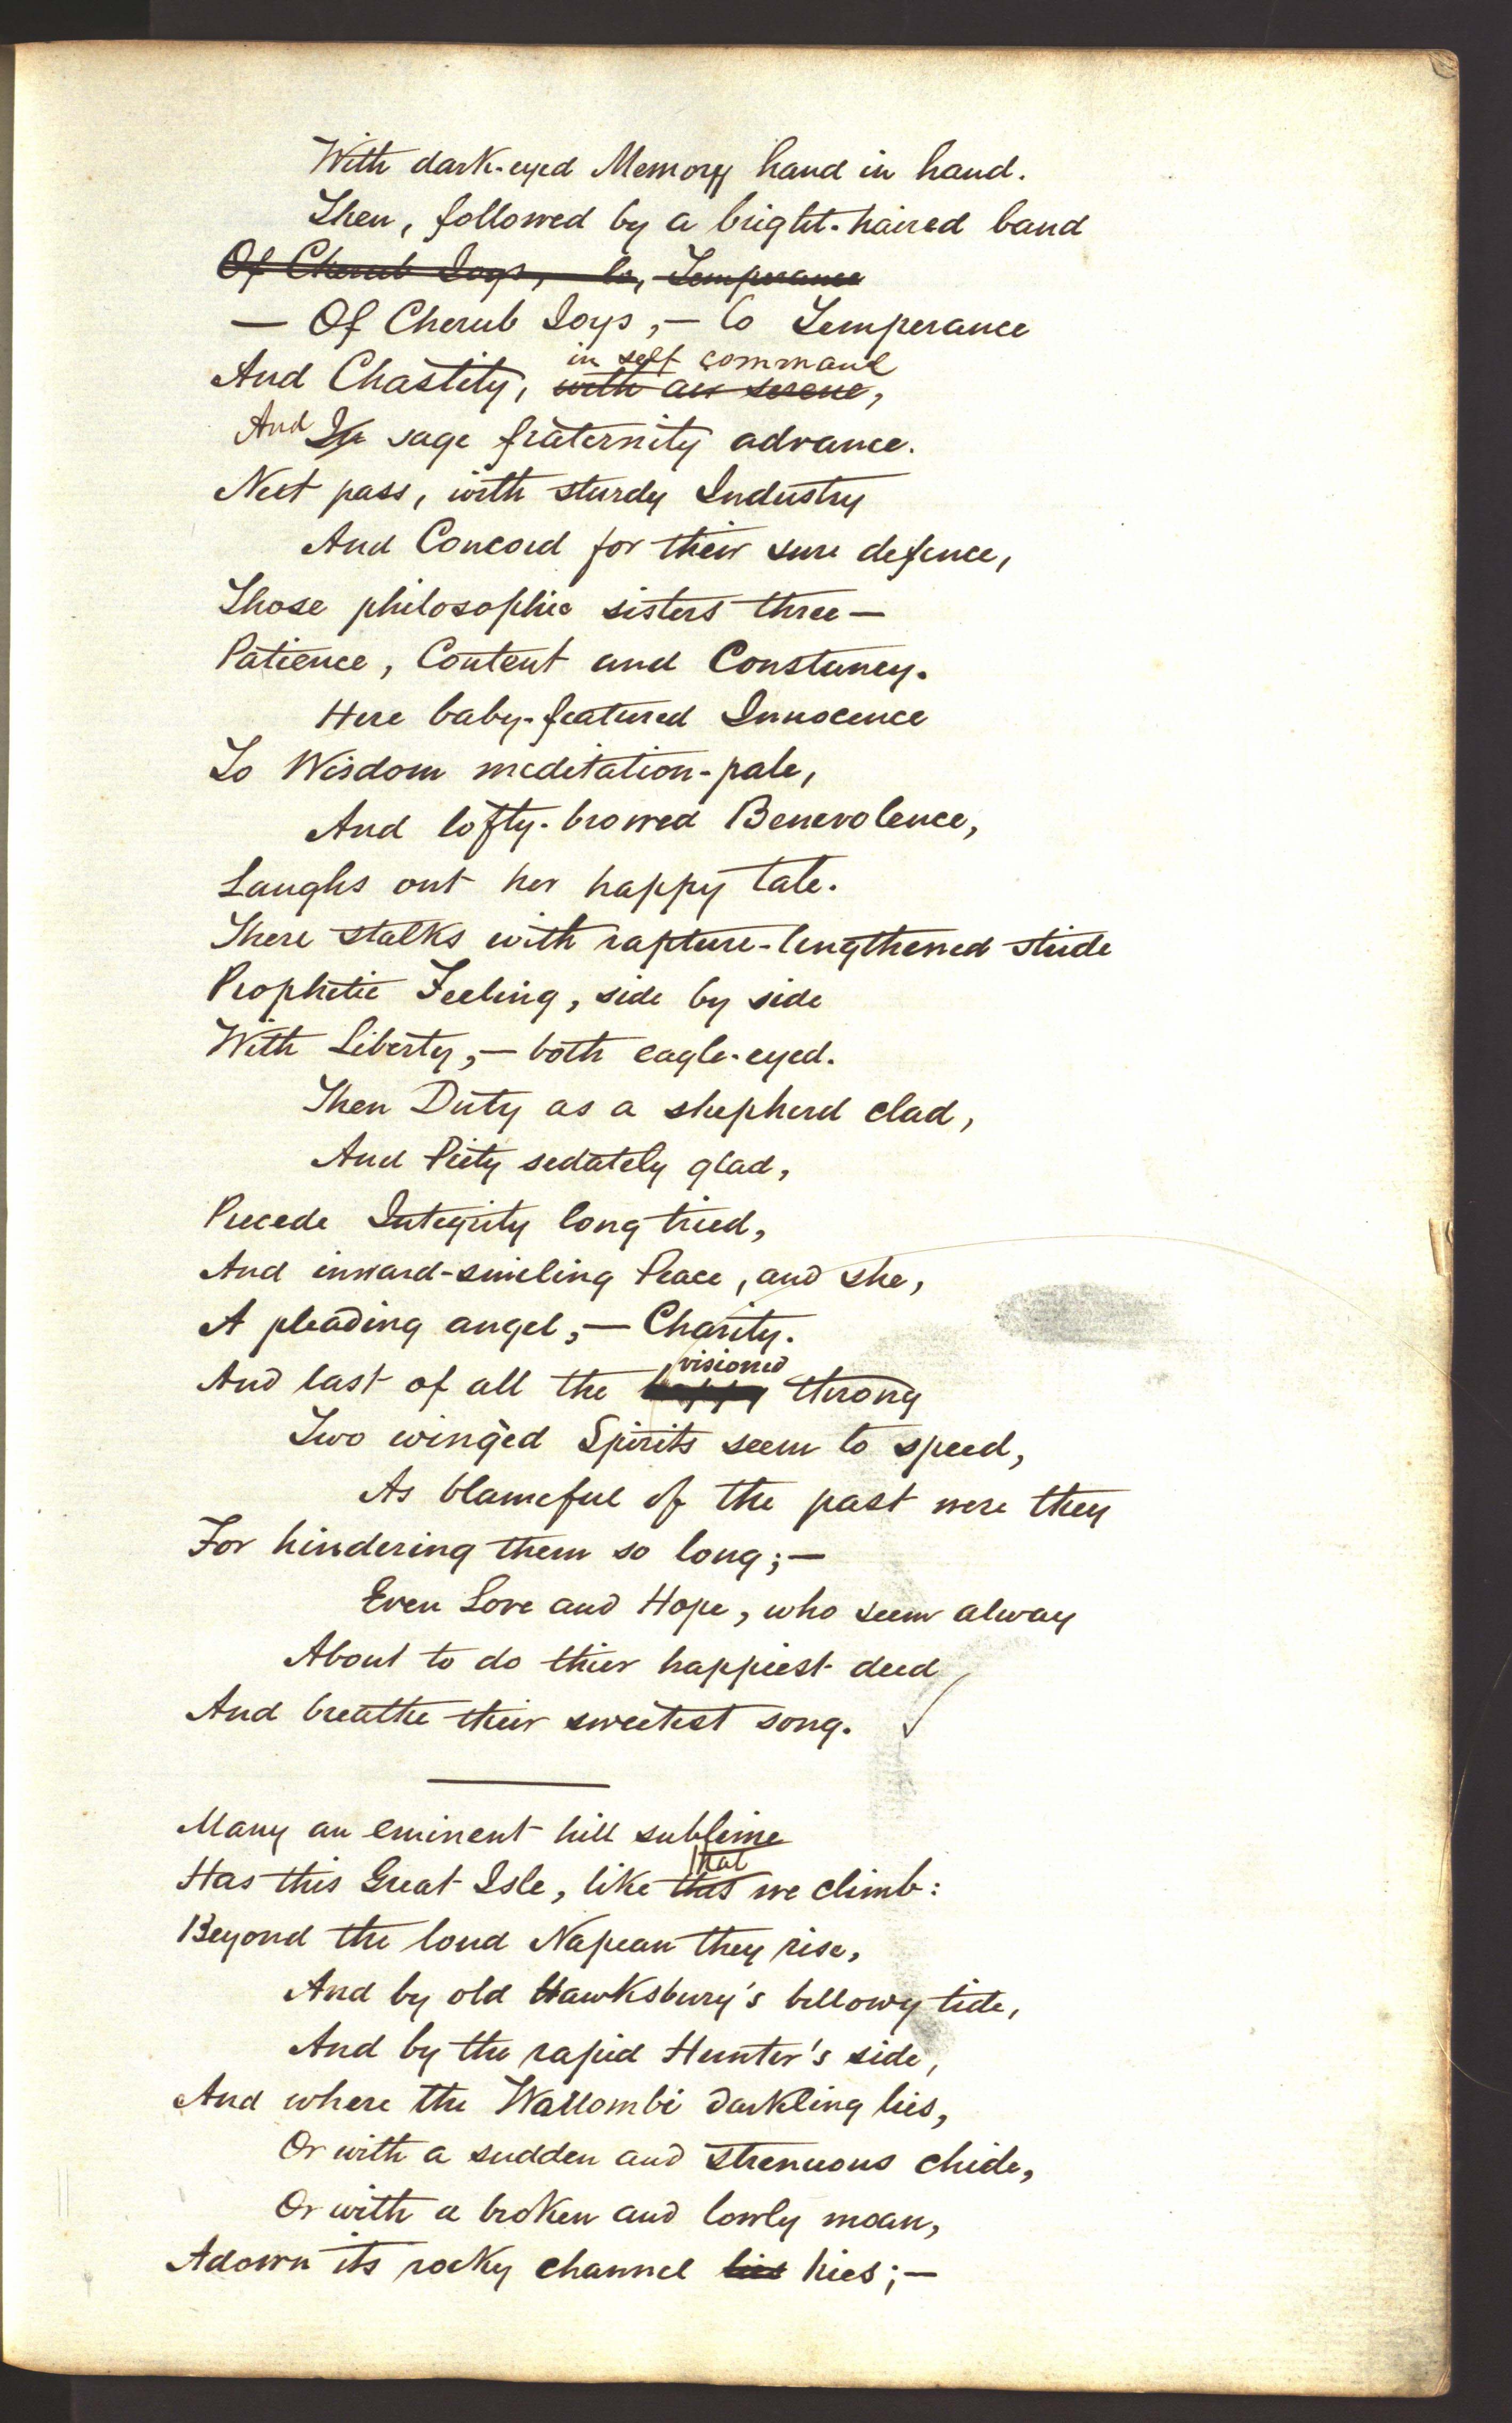 With dark-eyed Memory hand in hand.
Then, followed by a bright-haired band
Of Cherub Joys, lo, Temperance
— Of Cherub Joys,— lo Temperance
in self command
And Chastity, with air serene,
And In sage fraternity advance.
Next pass, with sturdy Industry
And Concord for their sure defence,
Those philosophic sisters three—
Patience, Content and Constancy.
Here baby-featured Innocence
To Wisdom meditation-pale,
And lofty-browed Benevolence,
Laughs out her happy tale.
There stalks with rapture-lengthened stride
Prophetic Feeling, side by side
With Liberty,— both eagle-eyed.
Then Duty as a shepherd clad,
And Piety sedately glad,
Precede Integrity long tried,
And inward-smiling Peace, and she,
A pleading angel,— Charity.
visioned
And last of all the happy throng
Two wingèd Spirits seem to speed,
As blameful of the past were they
For hindering them so long;—
Even Love and Hope, who seem alway
About to do thier happiest deed
And breathe their sweetest song.
Many an eminent hill sublime
that
Has this Great Isle, like this we climb:
Beyond the loud Napean they rise,
And by old Hawksbury's billowy tide,
And by the rapid Hunter's side,
And where the Wallombi darkling lies,
Or with a sudden and strenuous chide,
Or with a broken and lowly moan,
Adown its rocky channel lies hies;—